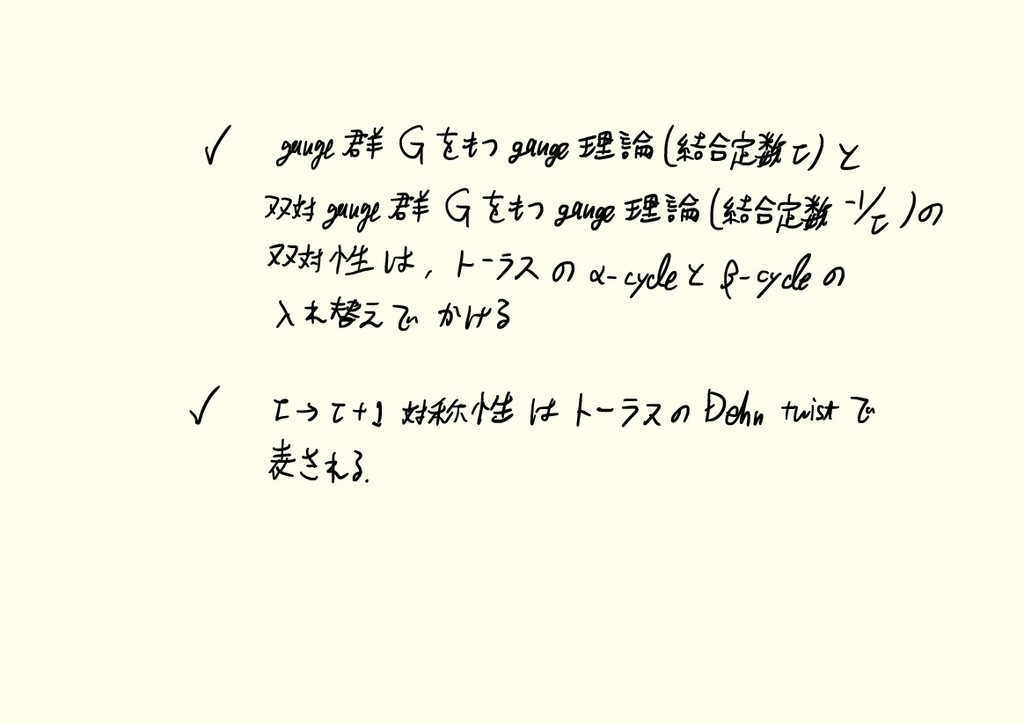 ✓ gauge群 G をもつ gauge 理論(結合定数 τ) と
双対 gauge 群 G をもつ gauge 理論(結合定数 -1/τ) の
双対性は, トーラスの α-cycle と β-cycle の
入れ替えで かける
✓ τ→τ+1 対称性はトーラスの Dehn twist で
表される.